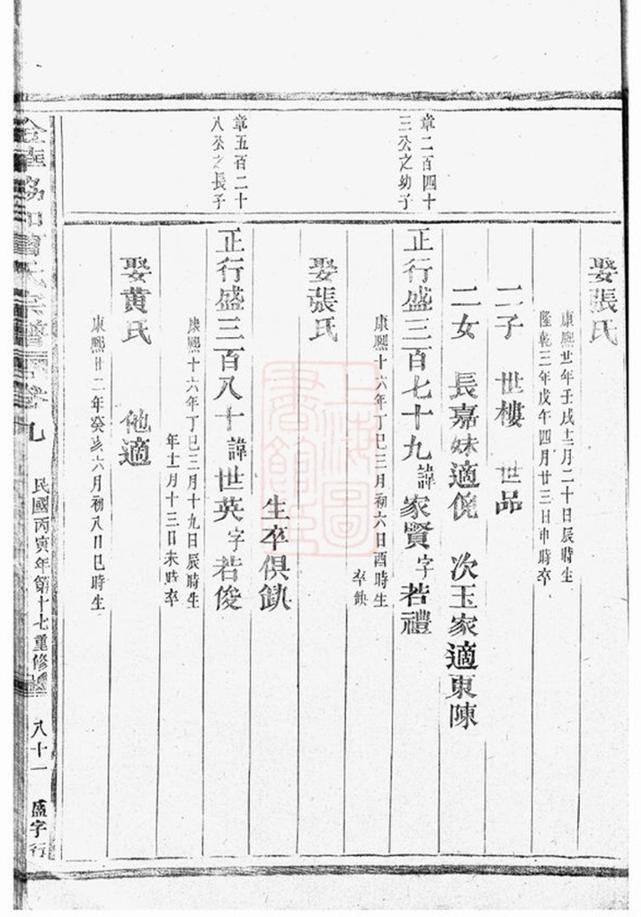 娶張氏
康熙廿年壬戌十二月二十日辰時生
隆乾三年戊午四月廿三日申時卒
二子 世樓 世品
二女 長嘉妹適倪 次玉家適東陳
章二百四十
三公之幼子
正行盛三百七十九諱家賢字若禮
康熙十六年丁巳三月初六日酉時生
卒缺
娶張氏
生卒俱缺
章五百二十
八公之長子
正行盛三百八十諱世英字若俊
康熙十六年丁巳三月十九日辰時生
年十一月十三日未時卒
娶黄氏 他適
康熙廿二年癸亥六月初八日巳時生
氏宗譜 九 民國丙寅年第十七重修 八十一 盛字行
上海圖書館藏